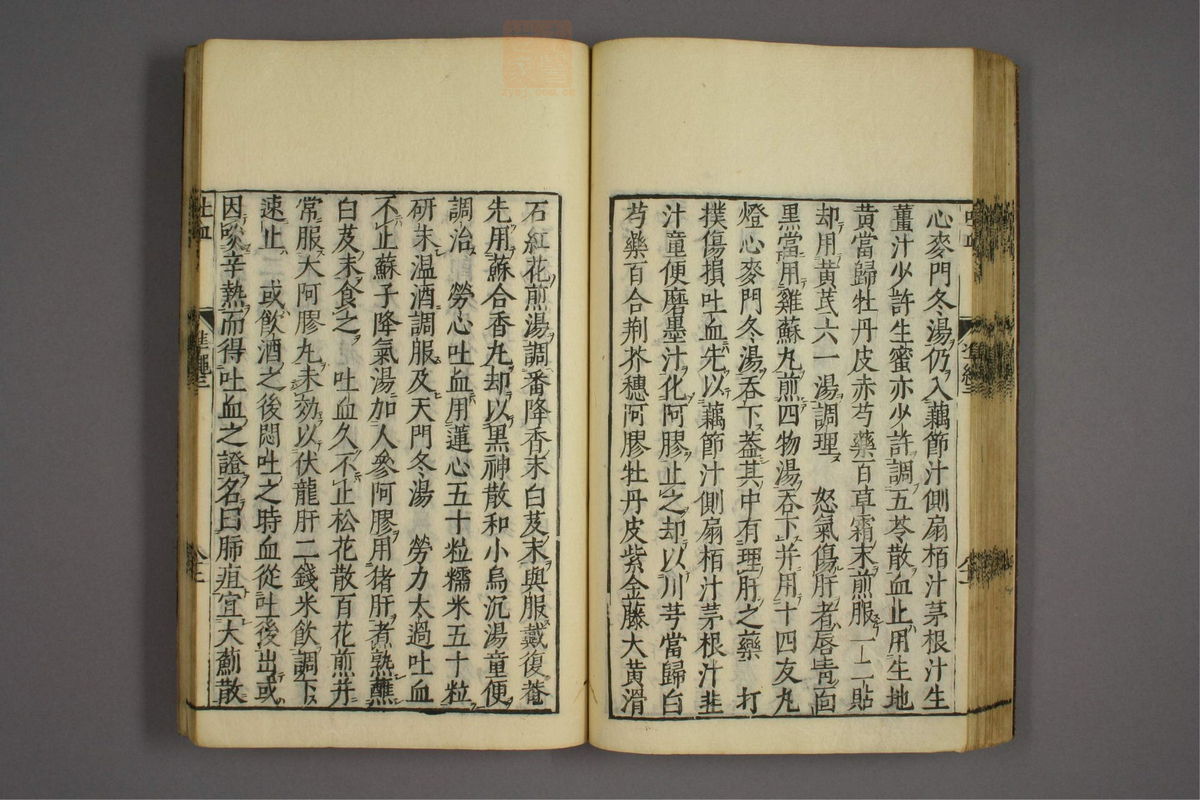 心麥門冬湯仍入藕節汁側扇栢汁茅根汁生
薑汁少許生蜜亦少許調五苓散血止用生地
黃當歸牡丹皮赤芍藥百草霜末煎服一二貼
却用黃芪六一湯調理 怒氣傷肝者唇青面
黑當用雞蘇丸煎四物湯吞下并用十四友丸
燈心麥門冬湯吞下葢其中有理肝之藥 打
撲傷損吐血先以藕節汁側扇栢汁茅根汁韭
汁童便磨墨汁化阿膠止之却以川芎當歸白
芍藥百合荆芥穗阿膠牡丹皮紫金藤大黃滑
石紅花煎湯調番降香末白芨末與服戴復菴
先用蘇合香丸却以黑神散和小烏沉湯童便
調治 勞心吐血用蓮心五十粒糯米五十粒
研朱温酒調服及天門冬湯 勞力太過吐血
不止蘇子降氣湯加人參阿膠用猪肝煮熟蘸
白芨末食之 吐血久不止松花散百花煎并
常服大阿膠丸未効以伏龍肝二錢米飲調下
速止 或飲酒之後悶吐之時血從吐後出或
因啖辛熱而得吐血之證名曰肺疽宜大薊散
吐血
準繩三